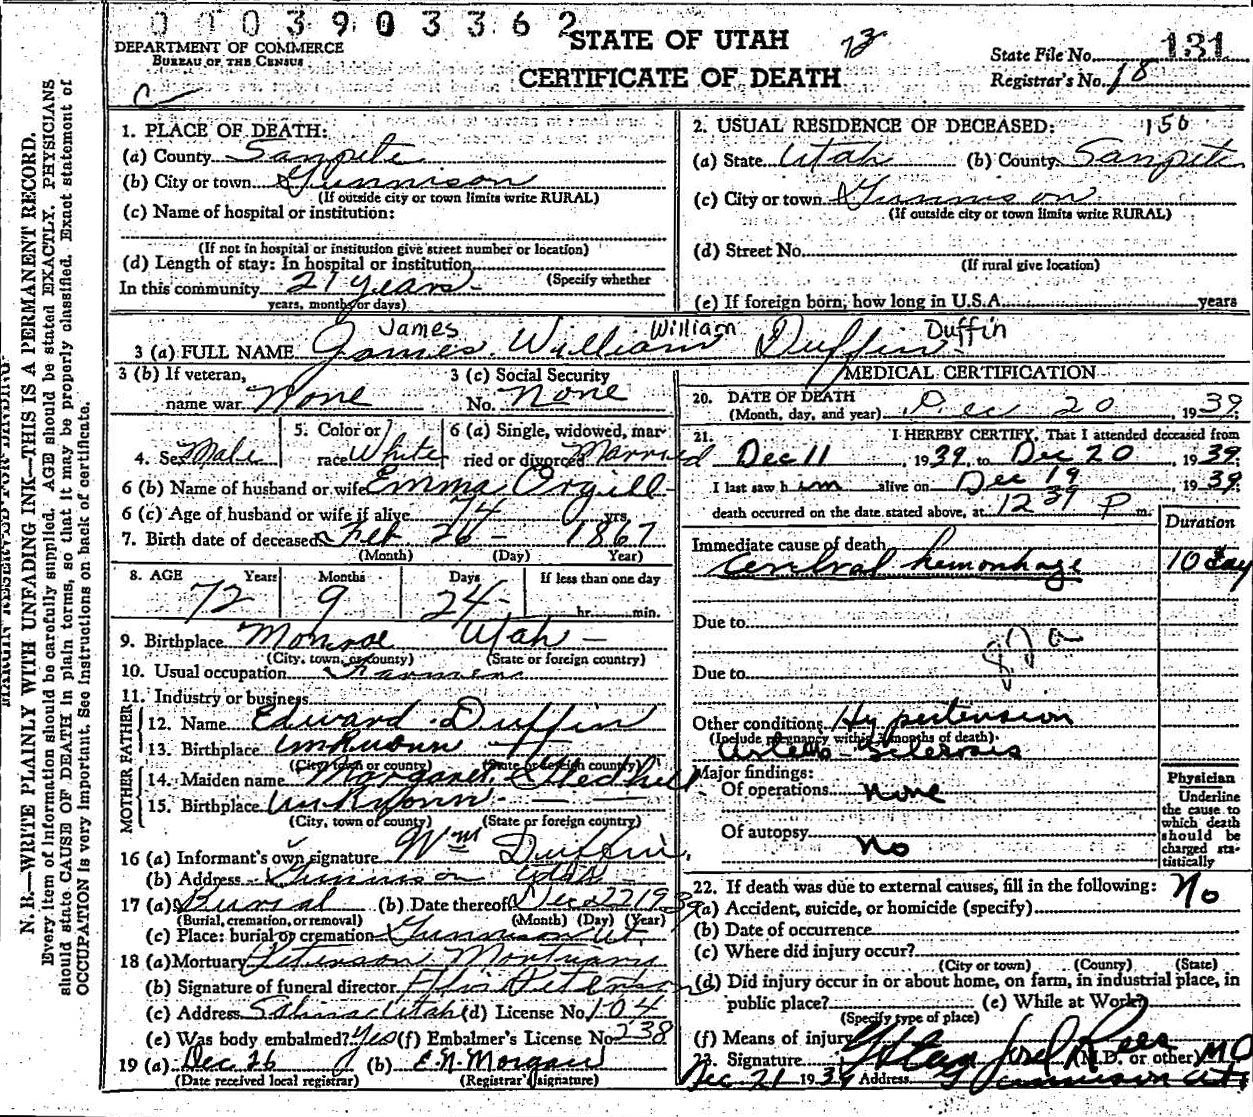 0003903362
STATE OF UTAH
CERTIFICATE OF DEATH
DEPARTMENT OF COMMERCE
BUREAU OF THE CENSUS
State File No. 131
Registrar's No. 18
N. B.—WRITE PLAINLY WITH UNFADING INK—THIS IS A PERMANENT RECORD.
Every item of information should be carefully supplied. AGE should be stated EXACTLY. PHYSICIANS
should state CAUSE OF DEATH in plain terms, so that it may be properly classified. Exact statement of
OCCUPATION is very important. See instructions on back of certificate.
1. PLACE OF DEATH:
(a) County Sanpete
(b) City or town Gunnison
(If outside city or town limits write RURAL)
(c) Name of hospital or institution:
(If not in hospital or institution give street number or location)
(d) Length of stay: In hospital or institution
(Specify whether
In this community 21 years
years, months or days)
2. USUAL RESIDENCE OF DECEASED: 150
(a) State Utah (b) County Sanpete
(c) City or town Gunnison
(If outside city or town limits write RURAL)
(d) Street No.
(If rural give location)
(e) If foreign born, how long in U.S.A. years
James William Duffin
3 (a) FULL NAME James William Duffin
3 (b) If veteran, name war None
3 (c) Social Security No. None
4. Sex Male
5. Color or race White
6 (a) Single, widowed, married or divorced Married
6 (b) Name of husband or wife Emma Orgill
6 (c) Age of husband or wife if alive 74 yrs.
7. Birth date of deceased Feb 26 - 1867
(Month) (Day) Year)
8. AGE Years Months Days If less than one day
72 9 24 hr. min.
9. Birthplace Monroe Utah
(City, town, or county) (State or foreign country)
10. Usual occupation Farmer
11. Industry or business
FATHER
12. Name Edward Duffin
13. Birthplace unknown
(City, town or county) (State or foreign country)
MOTHER
14. Maiden name Margaret
15. Birthplace Unknown
(City, town of county) (State or foreign country)
16 (a) Informant's own signature Wm Duffin
(b) Address Gunnison Utah
17 (a) Burial (b) Date thereof Dec 22 1939
(Burial, cremation, or removal) (Month) (Day) (Year)
(c) Place: burial or cremation Gunnison Ut.
18 (a) Mortuary Peterson Mortuary
(b) Signature of funeral director Peterson
(c) Address Salina Utah (d) License No. 104
(e) Was body embalmed? Yes (f) Embalmer's License No. 238
19 (a) Dec 26 (b) E. N. Morgan
(Date received local registrar) (Registrar's signature)
MEDICAL CERTIFICATION
20. DATE OF DEATH
(Month, day, and year) Dec 20, 1939
21. I HEREBY CERTIFY, That I attended deceased from
Dec 11, 1939, to Dec 20, 1939;
I last saw him alive on Dec 19, 1939;
death occurred on the date stated above, at 12 39 P m.
Duration
Immediate cause of death
Cerebral hemorrhage 10 day
Due to
Due to
Other conditions Hypertension
(Include pregnancy within 3 months of death)
Arterio-Sclerosis
Major findings:
Of operations None
Of autopsy No
Physician
Underline
the cause to
which death
should be
charged sta-
tistically
22. If death was due to external causes, fill in the following: No
(a) Accident, suicide, or homicide (specify)
(b) Date of occurrence
(c) Where did injury occur?
(City or town) (County) (State)
(d) Did injury occur in or about home, on farm, in industrial place, in
public place? (e) While at Work?
(Specify type of place)
(f) Means of injury
23. Signature Rees (M.D. or other) M D
Dec 21 1939 Address Gunnison Ut